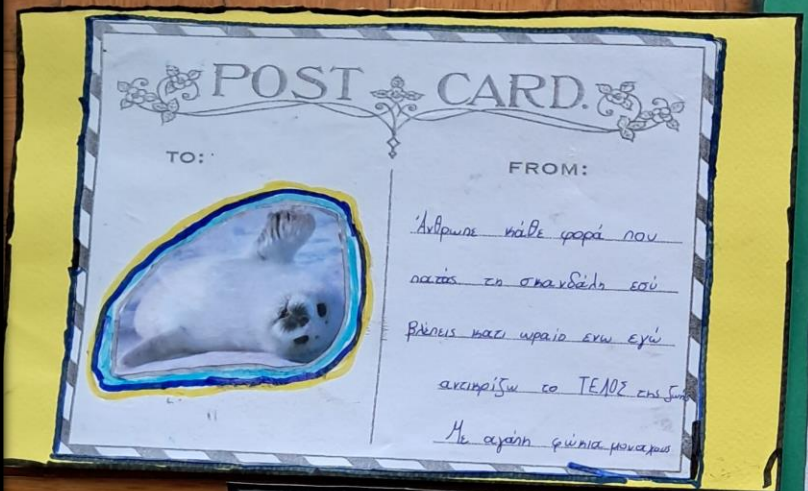 POST CARD.
TO:
FROM:
Άνθρωπε κάθε φορά που
πατάς τη σκανδάλη εσύ
βλέπεις κατι ωραίο ενω εγώ
αντικρίζω το ΤΕΛΟΣ της ζωής
Με αγάπη φώκια μοναχους